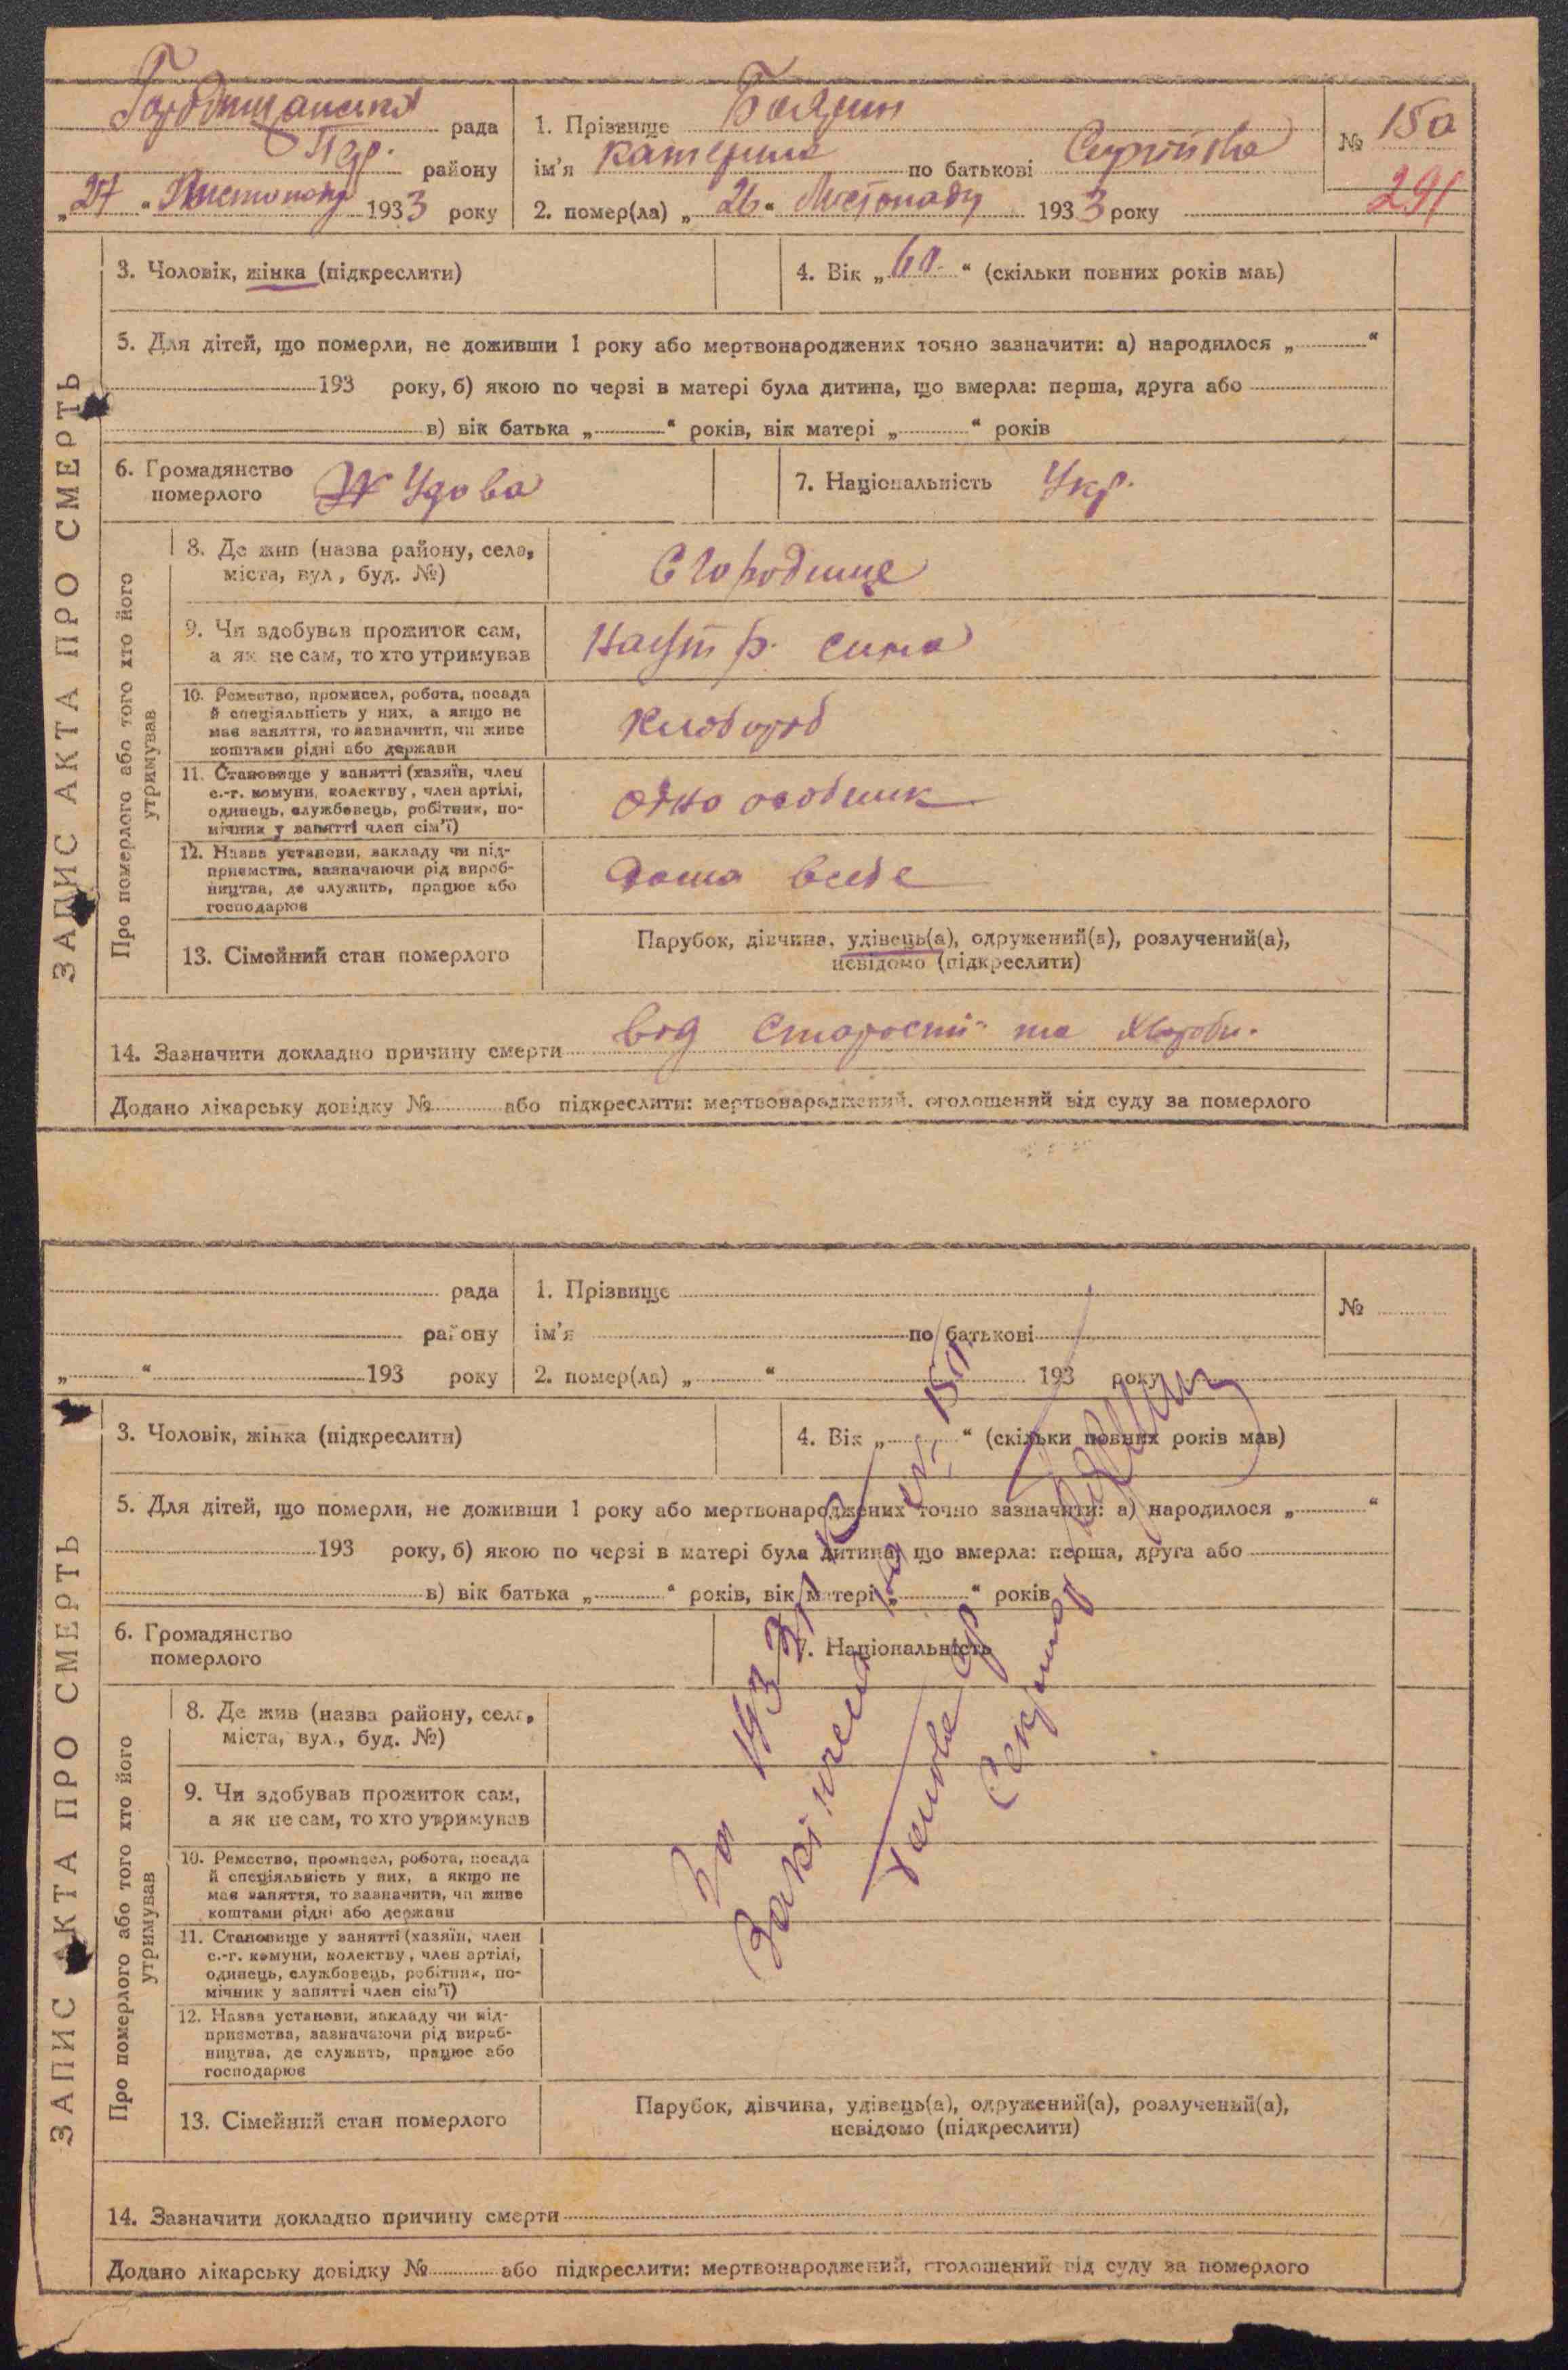 ЗАПИС АКТА ПРО СМЕРТЬ
Городищанська рада
Пер. району
„27“ Листопаду 1933 року
1. Прізвище Баядин
ім'я Катерина по батькові Сергіївна
2. помер(ла) „26“ Листопаду 1933 року
№ 150
291
3. Чоловік, жінка (підкреслити)
4. Вік „60“ (скільки повних років мав)
5. Для дітей, що померли, не доживши 1 року або мертвонароджених точно зазначити: а) народилося „ “
193 року, б) якою по черзі в матері була дитина, що вмерла: перша, друга або
в) вік батька „ “ років, вік матері „ “ років
6. Громадянство
померлого Удова
7. Національність Укр.
Про померлого або того хто його
утримував
8. Де жив (назва району, села,
міста, вул., буд. №)
С Городище
9. Чи здобував прожиток сам,
а як не сам, то хто утримував
На утр. сина
10. Ремество, промисел, робота, посада
й спеціяльність у них, а якщо не
має заняття, то зазначити, чи живе
коштами рідні або держави
Хлібороб
11. Становище у занятті (хазяїн, член
с.-г. комуни, колектву, член артілі,
одинець, службовець, робітник, по-
мічник у занятті член сім'ї)
одноосібник
12. Назва установи, закладу чи під-
приємства, зазначаючи рід вироб-
ництва, де служить, працює або
господарює
дома веде
13. Сімейний стан померлого
Парубок, дівчина, удівець(а), одружений(а), розлучений(а),
невідомо (підкреслити)
14. Зазначити докладно причину смерти від старости та хвороби.
Додано лікарську довідку № або підкреслити: мертвонароджений, оголошений від суду за померлого
ЗАПИС АКТА ПРО СМЕРТЬ
рада
району
„ “ 193 року
1. Прізвище
ім'я по батькові
2. помер(ла) „ “ 193 року
№
3. Чоловік, жінка (підкреслити)
4. Вік „ “ (скільки повних років мав)
5. Для дітей, що померли, не доживши 1 року або мертвонароджених точно зазначити: а) народилося „ “
193 року, б) якою по черзі в матері була дитина, що вмерла: перша, друга або
в) вік батька „ “ років, вік матері „ “ років
6. Громадянство
померлого
7. Національність
Про померлого або того хто його
утримував
8. Де жив (назва району, села,
міста, вул., буд. №)
9. Чи здобував прожиток сам,
а як не сам, то хто утримував
10. Ремество, промисел, робота, посада
й спеціяльність у них, а якщо не
має заняття, то зазначити, чи живе
коштами рідні або держави
11. Становище у занятті (хазяїн, член
с.-г. комуни, колектву, член артілі,
одинець, службовець, робітник, по-
мічник у занятті член сім'ї)
12. Назва установи, закладу чи під-
приємства, зазначаючи рід вироб-
ництва, де служить, працює або
господарює
13. Сімейний стан померлого
Парубок, дівчина, удівець(а), одружений(а), розлучений(а),
невідомо (підкреслити)
14. Зазначити докладно причину смерти
Додано лікарську довідку № або підкреслити: мертвонароджений, оголошений від суду за померлого
За 1933 р.
Закінчено на № 150
Голова с/р
Секретар